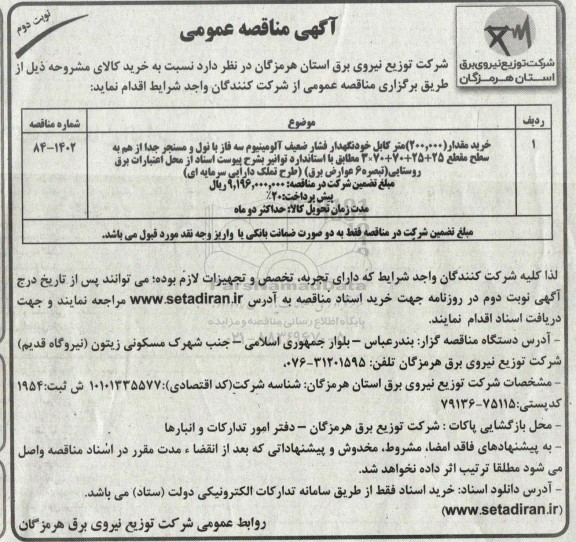 نوبت دوم
آگهی مناقصه عمومی
شرکت توزیع نیروی برق
استان هرمزگان
شرکت توزیع نیروی برق استان هرمزگان در نظر دارد نسبت به خرید کالای مشروحه ذیل از
طریق برگزاری مناقصه عمومی از شرکت کنندگان واجد شرایط اقدام نماید:
ردیف موضوع شماره مناقصه
۱ خرید مقدار(۲۰۰,۰۰۰)متر کابل خودنگهدار فشار ضعیف آلومینیوم سه فاز با نول و مسنجر جدا از هم به ۸۴-۱۴۰۲
سطح مقطع ۲۵+۲۵+۷۰+۷۰*۳ مطابق با استاندارد توانیر بشرح پیوست اسناد از محل اعتبارات برق
روستایی(تبصره۶ عوارض برق) (طرح تملک دارایی سرمایه ای)
مبلغ تضمین شرکت در مناقصه: ۹,۱۹۶,۰۰۰,۰۰۰ریال
پیش پرداخت:۲۰٪
مدت زمان تحویل کالا: حداکثر دو ماه
مبلغ تضمین شرکت در مناقصه فقط به دو صورت ضمانت بانکی یا واریز وجه نقد مورد قبول می باشد.
لذا کلیه شرکت کنندگان واجد شرایط که دارای تجربه، تخصص و تجهیزات لازم بوده؛ می توانند پس از تاریخ درج
آگهی نوبت دوم در روزنامه جهت خرید اسناد مناقصه به آدرس www.setadiran.ir مراجعه نمایند و جهت
دریافت اسناد اقدام نمایند.
پایگاه اطلاع رسانی مناقصه و مزایده
- آدرس دستگاه مناقصه گزار: بندرعباس - بلوار جمهوری اسلامی - جنب شهرک مسکونی زیتون (نیروگاه قدیم)
شرکت توزیع نیروی برق هرمزگان تلفن: ۳۱۲۰۱۵۹۵-۰۷۶.
- مشخصات شرکت توزیع نیروی برق استان هرمزگان: شناسه شرکت(کد اقتصادی):۱۰۱۰۱۳۳۵۵۷۷ ش ثبت:۱۹۵۴
کدپستی:۷۵۱۱۵-۷۹۱۳۶
- محل بازگشایی پاکات : شرکت توزیع برق هرمزگان - دفتر امور تدارکات و انبارها
- به پیشنهادهای فاقد امضا، مشروط، مخدوش و پیشنهاداتی که بعد از انقضاء مدت مقرر در اسناد مناقصه واصل
می شود مطلقا ترتیب اثر داده نخواهد شد.
- آدرس دانلود اسناد: خرید اسناد فقط از طریق سامانه تدارکات الکترونیکی دولت (ستاد) می باشد.
(www.setadiran.ir)
روابط عمومی شرکت توزیع نیروی برق هرمزگان